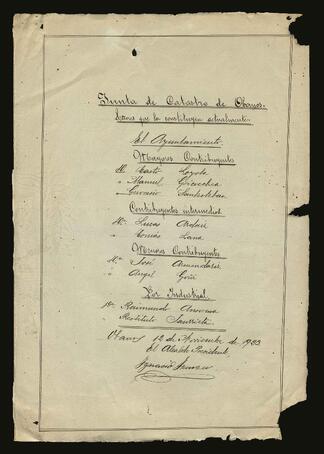 Junta de Catastro de Obanos.
Señores que la constituyen actualmente.
El Ayuntamiento
Mayores Contribuyentes
Dn. Casto Loyola
" Manuel Goicoechea
" Gervasio
Contribuyentes intermedios
Dn. Lucas
" Tomás Lana
Menores Contribuyentes
Dn. José Armendariz
" Angel Goñi
Por Industrial
Dn. Raimundo
" Restituto
Obanos 12 de Noviembre de 1933
El Alcalde Presidente
Ignacio